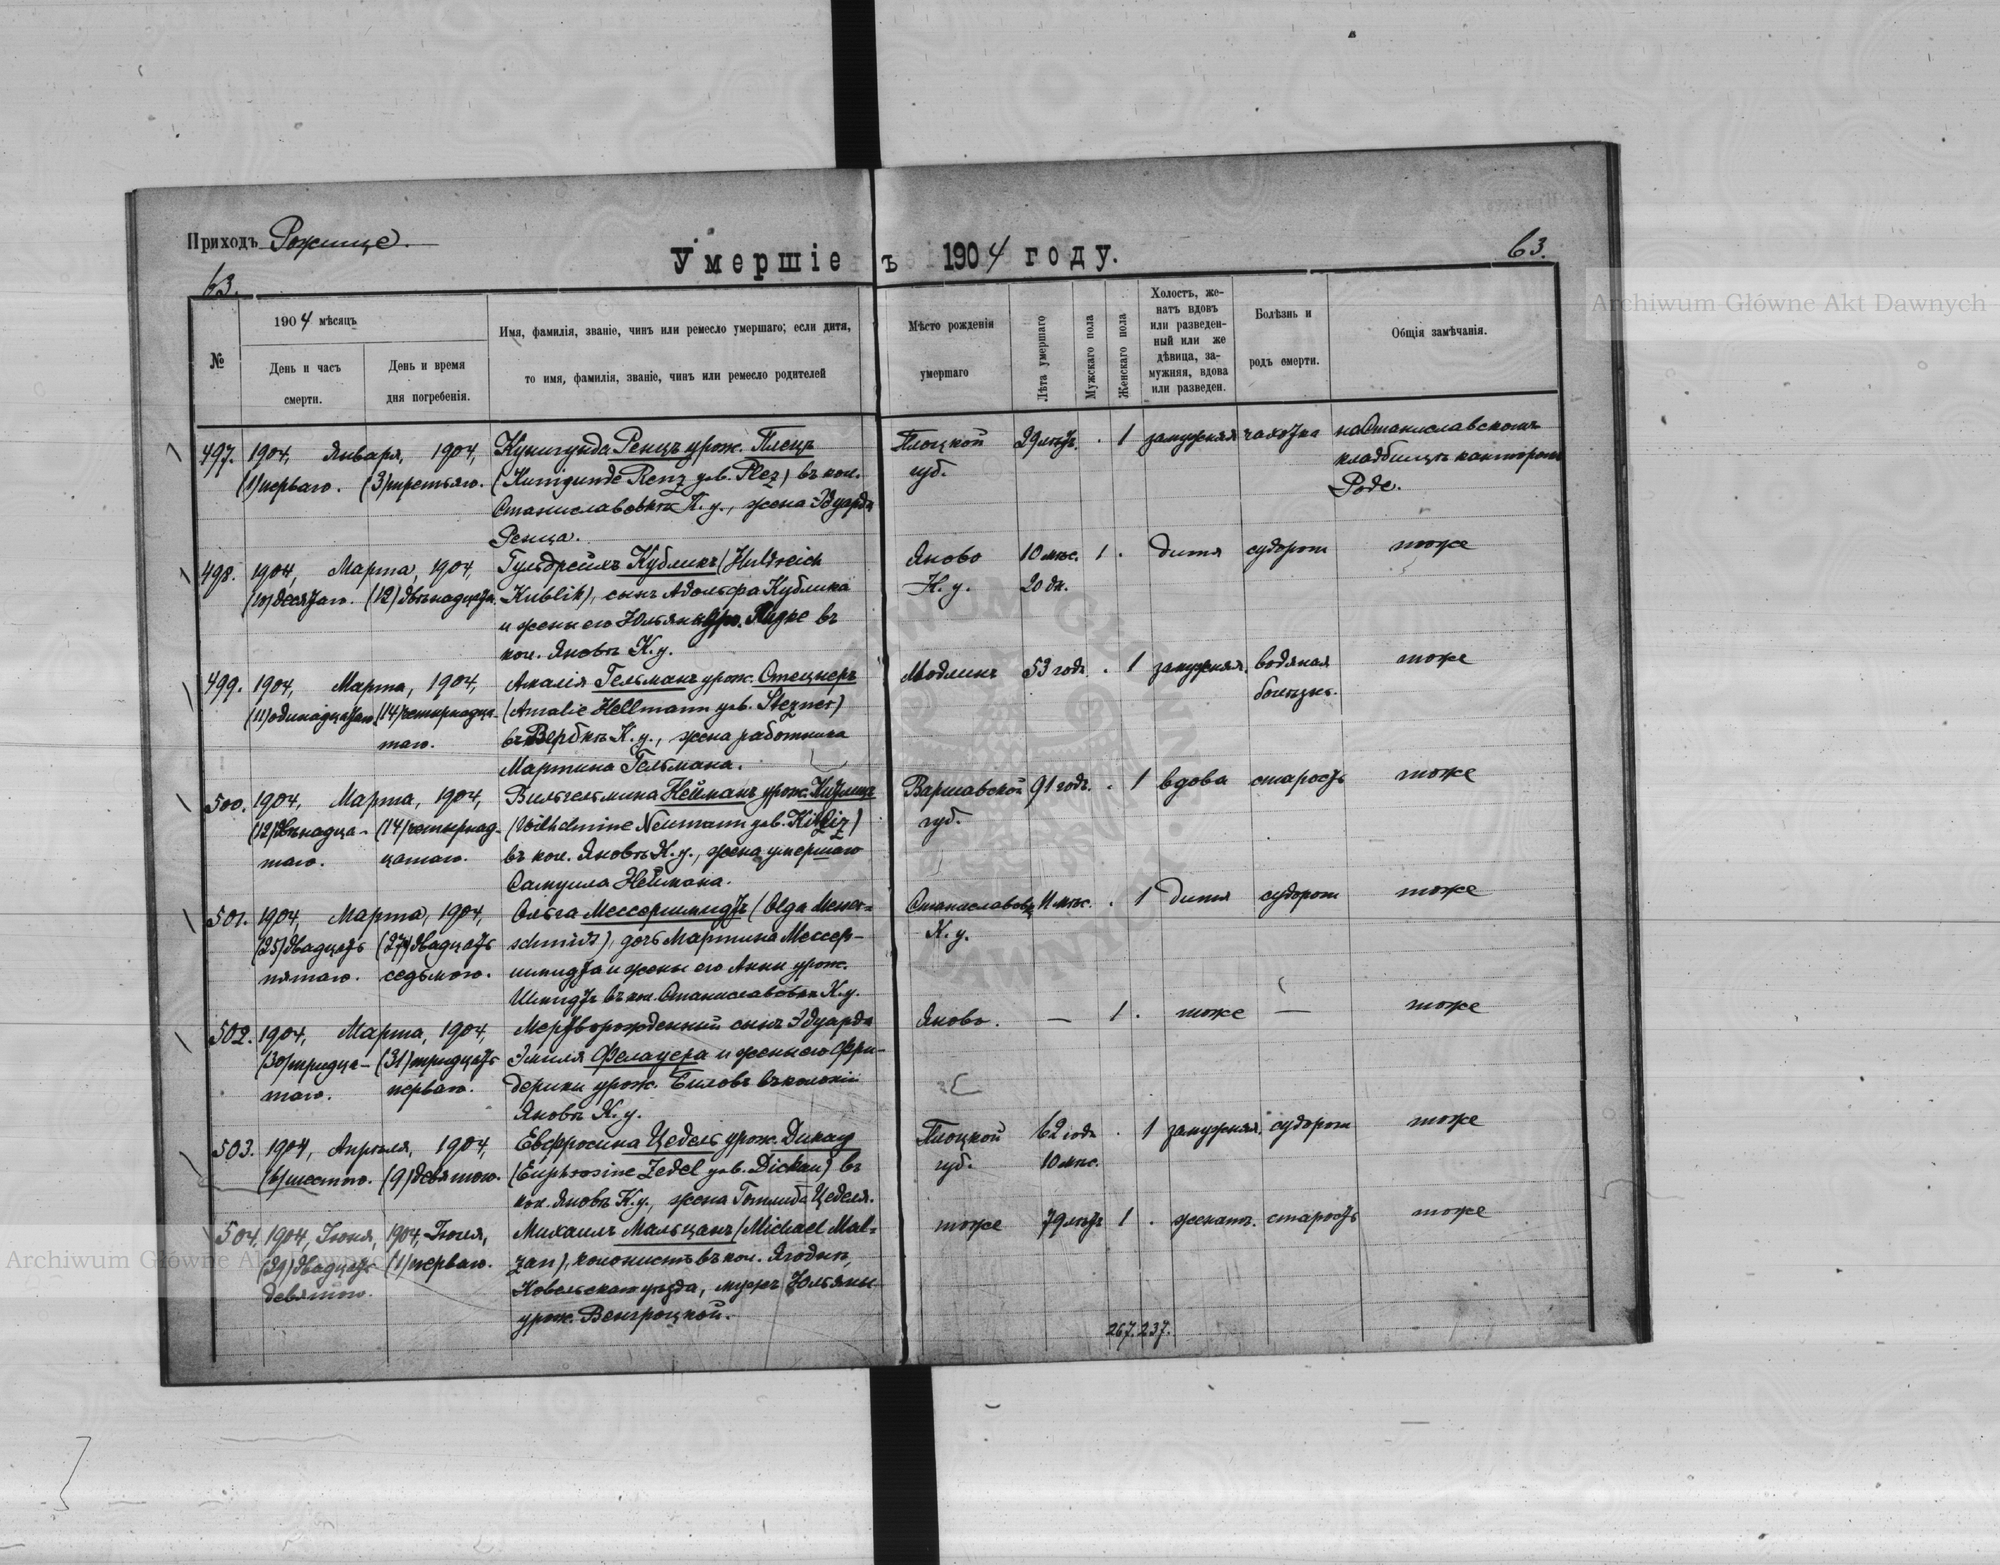 Приходъ Рожище.
Умершіе въ 1904 году.
63.
63.
№
1904 мѣсяцъ
День и часъ
смерти.
День и время
дня погребенія.
Имя, фамилія, званіе, чинъ или ремесло умершаго; если дитя,
то имя, фамилія, званіе, чинъ или ремесло родителей
Мѣсто рожденія
умершаго
Лѣта умершаго
Мужскаго пола
Женскаго пола
Холостъ, же-
натъ вдовъ
или разведен-
ный или же
дѣвица, за-
мужняя, вдова
или разведен.
Болѣзнь и
родъ смерти.
Общія замѣчанія.
497. 1904, Января, 1904, Кунигунда Ренцъ урож. Плецъ Плоцкой 29 лѣтъ. . 1 замужняя чахотка на Станиславскомъ
(1) перваго. (3) третьяго. (Kunigunde Renz geb. Plez) въ кол. губ. кладбищѣ канторомъ
Станиславовкѣ К. у., жена Эдуарда Роде.
Ренца.
498. 1904, Марта, 1904, Гульдрейхъ Кубликъ (Huldreich Яново 10 мѣс. 1 . дитя судорог. тоже
(10) десятаго. (12) двѣнадцата. Kublik), сынъ Адольфа Кублика К. у. 20 дн.
и жены его Юльяны въ
кол. Яновѣ К. у.
499. 1904, Марта, 1904, Амалія Гельманъ урож. Стецнеръ Модлинъ 53 год. . 1 замужняя. водяная тоже
(11) одинадцатаго (14) четырнадца- (Amalie Hellmann geb. Stezner) болѣзнь.
таго. въ Вербкѣ К. у., жена работника
Мартина Гельмана.
500. 1904, Марта, 1904, Вильгельмина Нейманъ урож. Варшавской 91 годъ. . 1 вдова старость тоже
(12) двѣнадца- (14) четырнад- (Wilhelmine Neumann geb. ) губ.
таго. цатаго. въ кол. Яновѣ К. у., жена умершаго
Самуила Неймана.
501. 1904, Марта, 1904, Ольга Мессершмидтъ (Olga Messer- Станиславовка 11 мѣс. . 1 дитя судорог. тоже
(25) двадцать (27) двадцать schmidt), дочь Мартина Мессер- К. у.
пятаго. седьмого. шмидта и жены его Анны урож.
Шмидтъ въ кол. Станиславовкѣ К. у.
502. 1904, Марта, 1904, Мертворожденный сынъ Эдуарда Яново. — 1 . тоже — тоже
(30) тридца- (31) тридцать Эмиля Фелауера и жены его Фри-
таго. перваго. дерики урож. Биловъ въ колоніи
Яновѣ К. у.
503. 1904, Апрѣля, 1904, Евфросина Цедель урож. Дикау Плоцкой 62 год. . 1 замужняя. судорог. тоже
(6) шестого. (9) девятого. (Euphrosine Zedel geb. Dickau) въ губ. 10 мѣс.
кол. Яновѣ К. у., жена Готлиба Цеделя.
504. 1904, Іюня, 1904, Іюля, Михаилъ Мальцанъ (Michael Mal- тоже 79 лѣтъ 1 . женатъ. старость тоже
(29) двадцать (1) перваго. zan), колонистъ въ кол. Ягодин,
девятого. Ковельскаго уѣзда, мужъ Юльяны
урож. Венгроцкой.
267. 237.
Archiwum Główne Akt Dawnych
Archiwum Główne Akt Dawnych